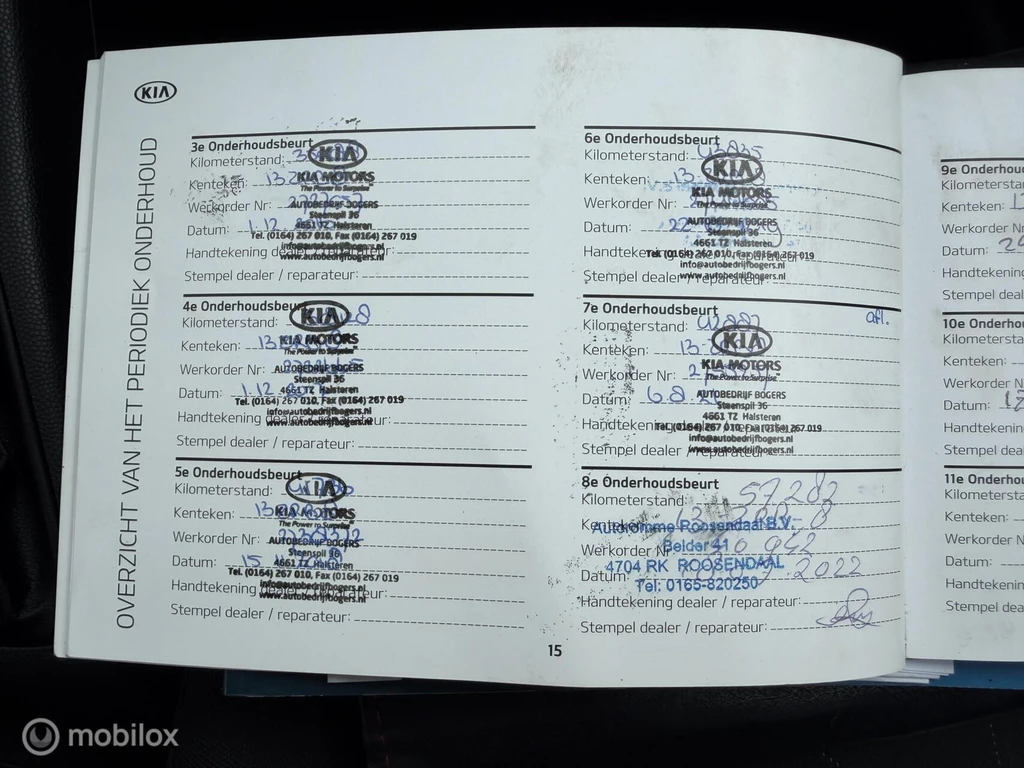 KIA
OVERZICHT VAN HET PERIODIEK ONDERHOUD
3e Onderhoudsbeurt
Kilometerstand:
KIA
Kenteken:
KIA MOTORS
The Power to Surprise
Werkorder Nr:
AUTOBEDRIJF BOGERS
Steenspil 36
Datum: 1.12
4661 TZ Halsteren
Tel. (0164) 267 010, Fax (0164) 267 019
Handtekening dealer / reparateur:
info@autobedrijfbogers.nl
www.autobedrijfbogers.nl
Stempel dealer / reparateur:
4e Onderhoudsbeurt
Kilometerstand:
KIA
Kenteken:
KIA MOTORS
The Power to Surprise
Werkorder Nr:
AUTOBEDRIJF BOGERS
Steenspil 36
Datum: 1.12
4661 TZ Halsteren
Tel. (0164) 267 010, Fax (0164) 267 019
Handtekening dealer / reparateur:
info@autobedrijfbogers.nl
www.autobedrijfbogers.nl
Stempel dealer / reparateur:
5e Onderhoudsbeurt
Kilometerstand:
KIA
Kenteken:
KIA MOTORS
The Power to Surprise
Werkorder Nr:
AUTOBEDRIJF BOGERS
Steenspil 36
Datum: 15
4661 TZ Halsteren
Tel. (0164) 267 010, Fax (0164) 267 019
Handtekening dealer / reparateur:
info@autobedrijfbogers.nl
www.autobedrijfbogers.nl
Stempel dealer / reparateur:
6e Onderhoudsbeurt
Kilometerstand:
KIA
Kenteken: 13
KIA MOTORS
The Power to Surprise
Werkorder Nr:
AUTOBEDRIJF BOGERS
Steenspil 36
Datum: 22
4661 TZ Halsteren
Tel. (0164) 267 010, Fax (0164) 267 019
Handtekening dealer / reparateur:
info@autobedrijfbogers.nl
www.autobedrijfbogers.nl
Stempel dealer / reparateur:
7e Onderhoudsbeurt
afl.
Kilometerstand: 42887
KIA
Kenteken: 13
KIA MOTORS
The Power to Surprise
Werkorder Nr:
AUTOBEDRIJF BOGERS
Steenspil 36
Datum: 6.8.21
4661 TZ Halsteren
Tel. (0164) 267 010, Fax (0164) 267 019
Handtekening dealer / reparateur:
info@autobedrijfbogers.nl
www.autobedrijfbogers.nl
Stempel dealer / reparateur:
8e Onderhoudsbeurt
Kilometerstand: 57282
Kenteken:
Autodromme Roosendaal B.V.
Werkorder Nr: 942
Belder 41
4704 RK ROOSENDAAL
Datum: 2022
Tel: 0165-820250
Handtekening dealer / reparateur:
Stempel dealer / reparateur:
15
9e Onderhoud
Kilometersta
Kenteken:
Werkorder N
Datum:
Handtekening
Stempel deal
10e Onderhou
Kilometersta
Kenteken:
Werkorder N
Datum:
Handtekening
Stempel deal
11e Onderhou
Kilometersta
Kenteken:
Werkorder N
Datum:
Handtekenin
Stempel dea
mobilox